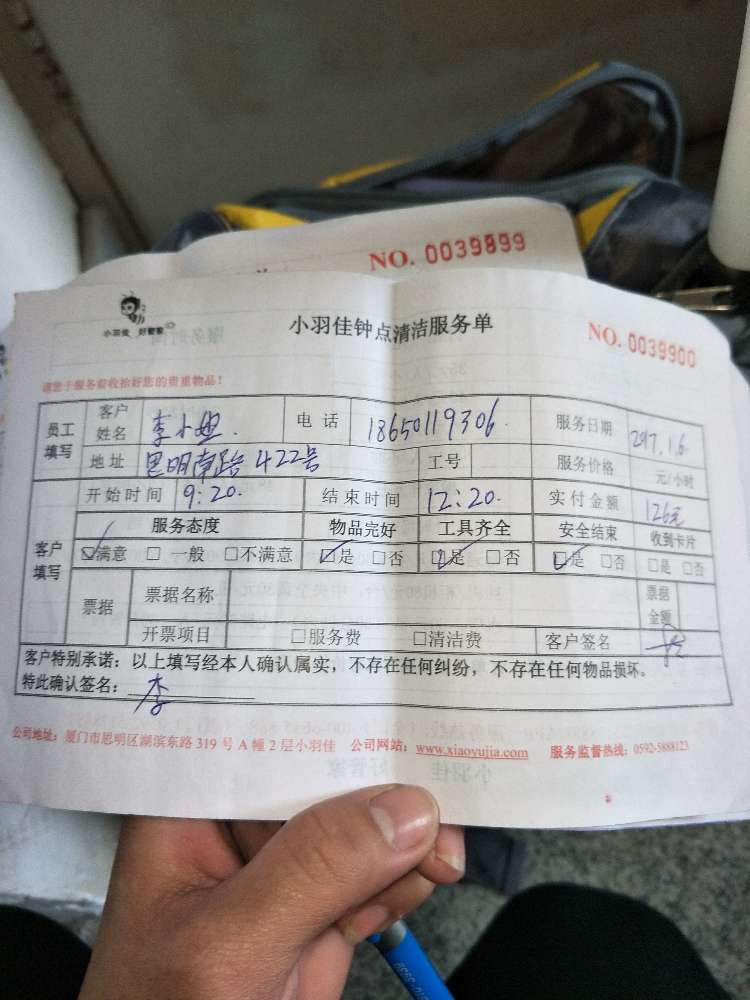 NO. 0039899
小羽佳 好管家
小羽佳钟点清洁服务单
NO. 0039900
请您于服务前收拾好您的贵重物品！
员工填写 客户姓名 李小姐. 电话 18650119306. 服务日期 2017.1.6.
地址 思明南路422号 工号 服务价格 元/小时
客户填写 开始时间 9:20. 结束时间 12:20. 实付金额 126元
服务态度 物品完好 工具齐全 安全结束 收到卡片
☑满意 □ 一般 □不满意 ☑是 □否 ☑是 □否 ☑是 □否 □是 □否
票据 票据名称 票据金额
开票项目 □服务费 □清洁费 客户签名
客户特别承诺：以上填写经本人确认属实，不存在任何纠纷，不存在任何物品损坏。
特此确认签名： 李
公司地址：厦门市思明区湖滨东路 319 号 A 幢 2 层小羽佳 公司网站：www.xiaoyujia.com 服务监督热线：0592-5888123